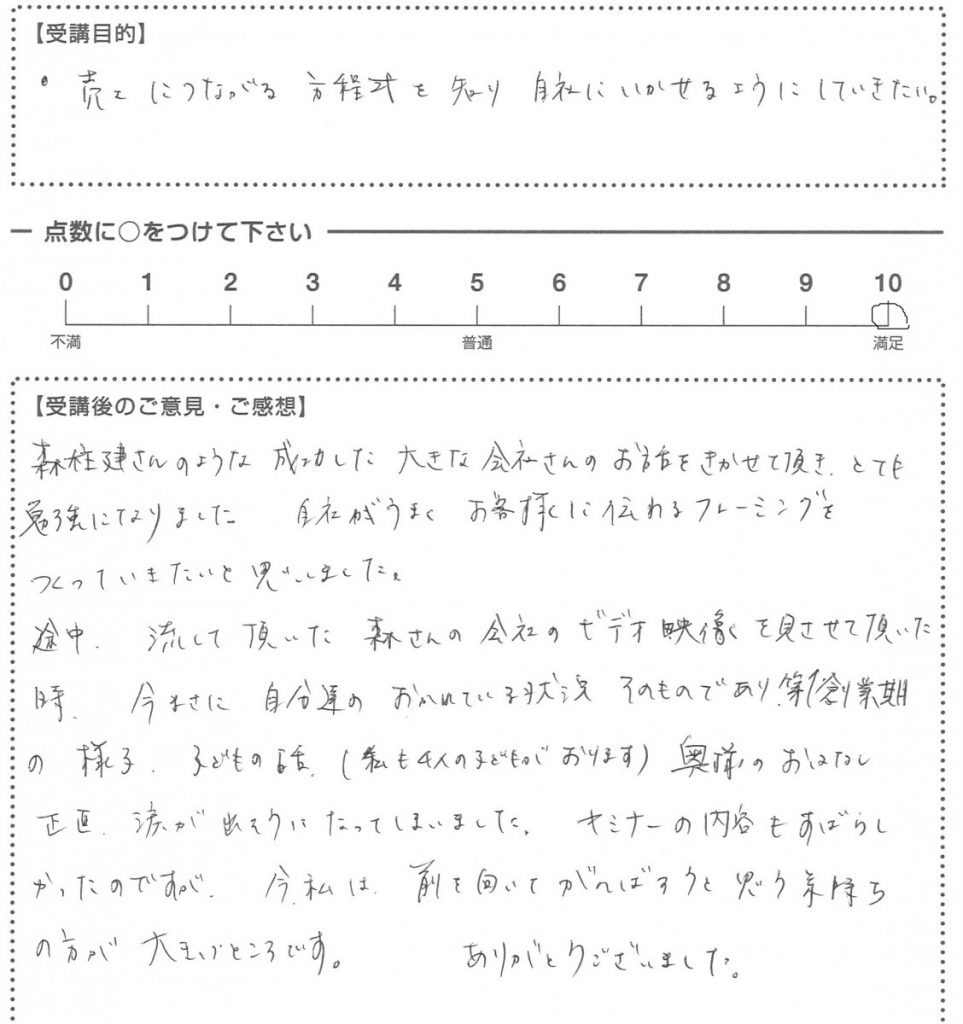 【受講目的】
・売上につながる方程式を知り自社にいかせるようにしていきたい。
点数に○をつけて下さい
0 1 2 3 4 5 6 7 8 9 10
不満 普通 満足
【受講後のご意見・ご感想】
森住建さんのような成功した大きな会社さんのお話をきかせて頂き、とても
勉強になりました 自社がうまくお客様に伝わるフレーミングを
つくっていきたいと思いました。
途中、流して頂いた森さんの会社のビデオ映像を見させて頂いた
時、今まさに自分達のおかれている状況そのものであり、第1創業期
の様子、子どもの話、(私も4人の子どもがおります)奥様のおはなし
正直、涙が出そうになってしまいました。セミナーの内容もすばらし
かったのですが、今、私は、前を向いてがんばろうと思う気持ち
の方が大きいところです。 ありがとうございました。